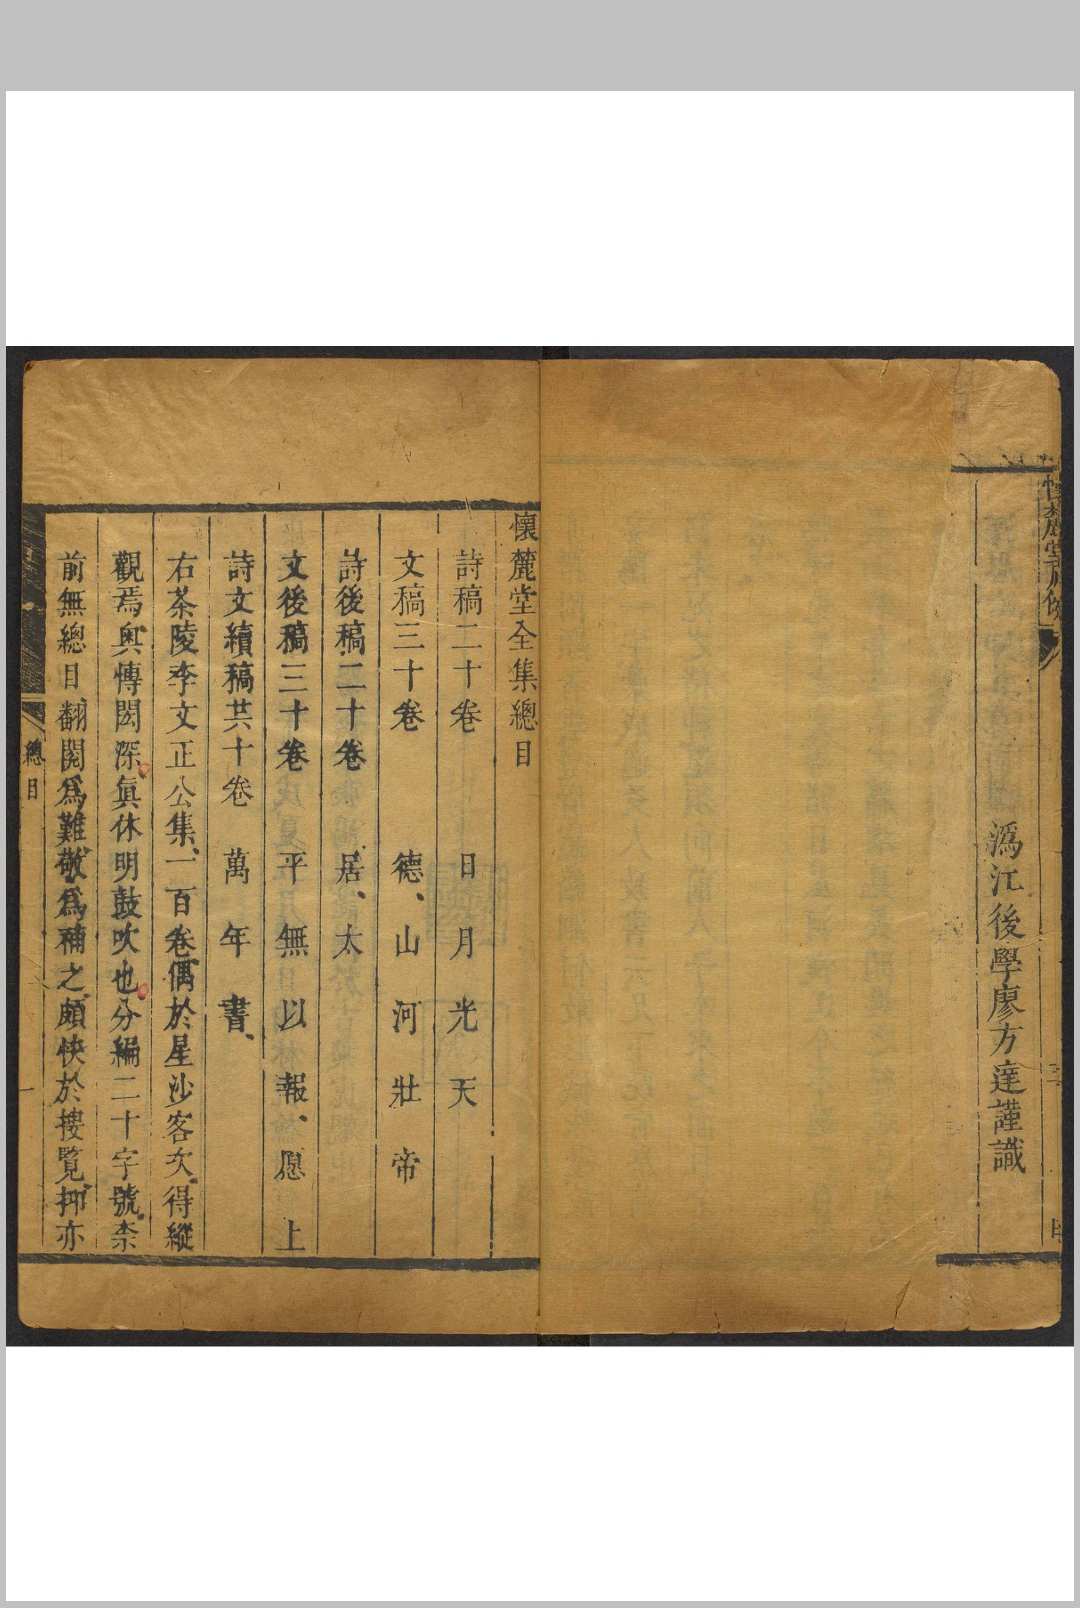 溈江後學廖方達謹識
懷麓堂全集總目
詩稿二十卷 日月光天
文稿三十卷 德、山河壯帝
詩後稿二十卷 居、太
文後稿三十卷 平無以報、愿上
詩文續稿共十卷 萬年書、
右茶陵李文正公集、一百卷偶於星沙客次、得縱
觀焉奧慱閎深、眞休明鼓吹也、分編二十字號柰
前無總目翻閱爲難、敬爲補之、頗快於搜覧、抑亦
總目
一